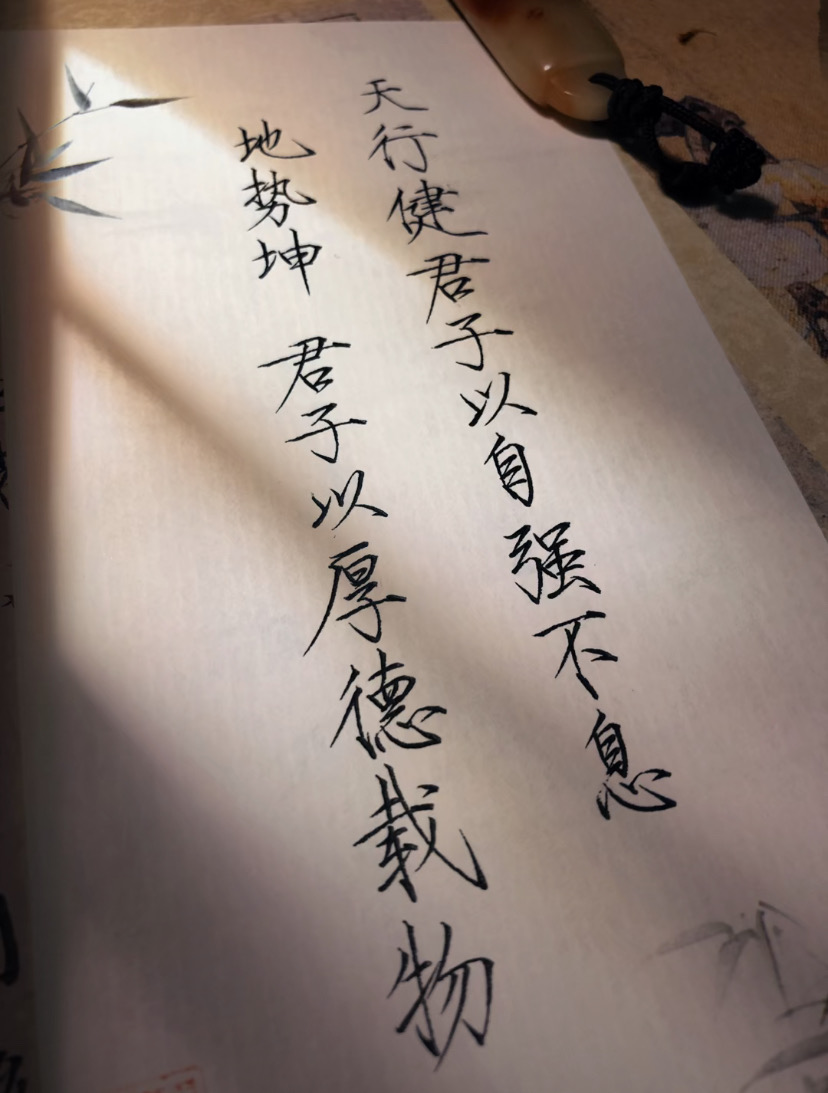 天行健君子以自强不息
地势坤 君子以厚德载物